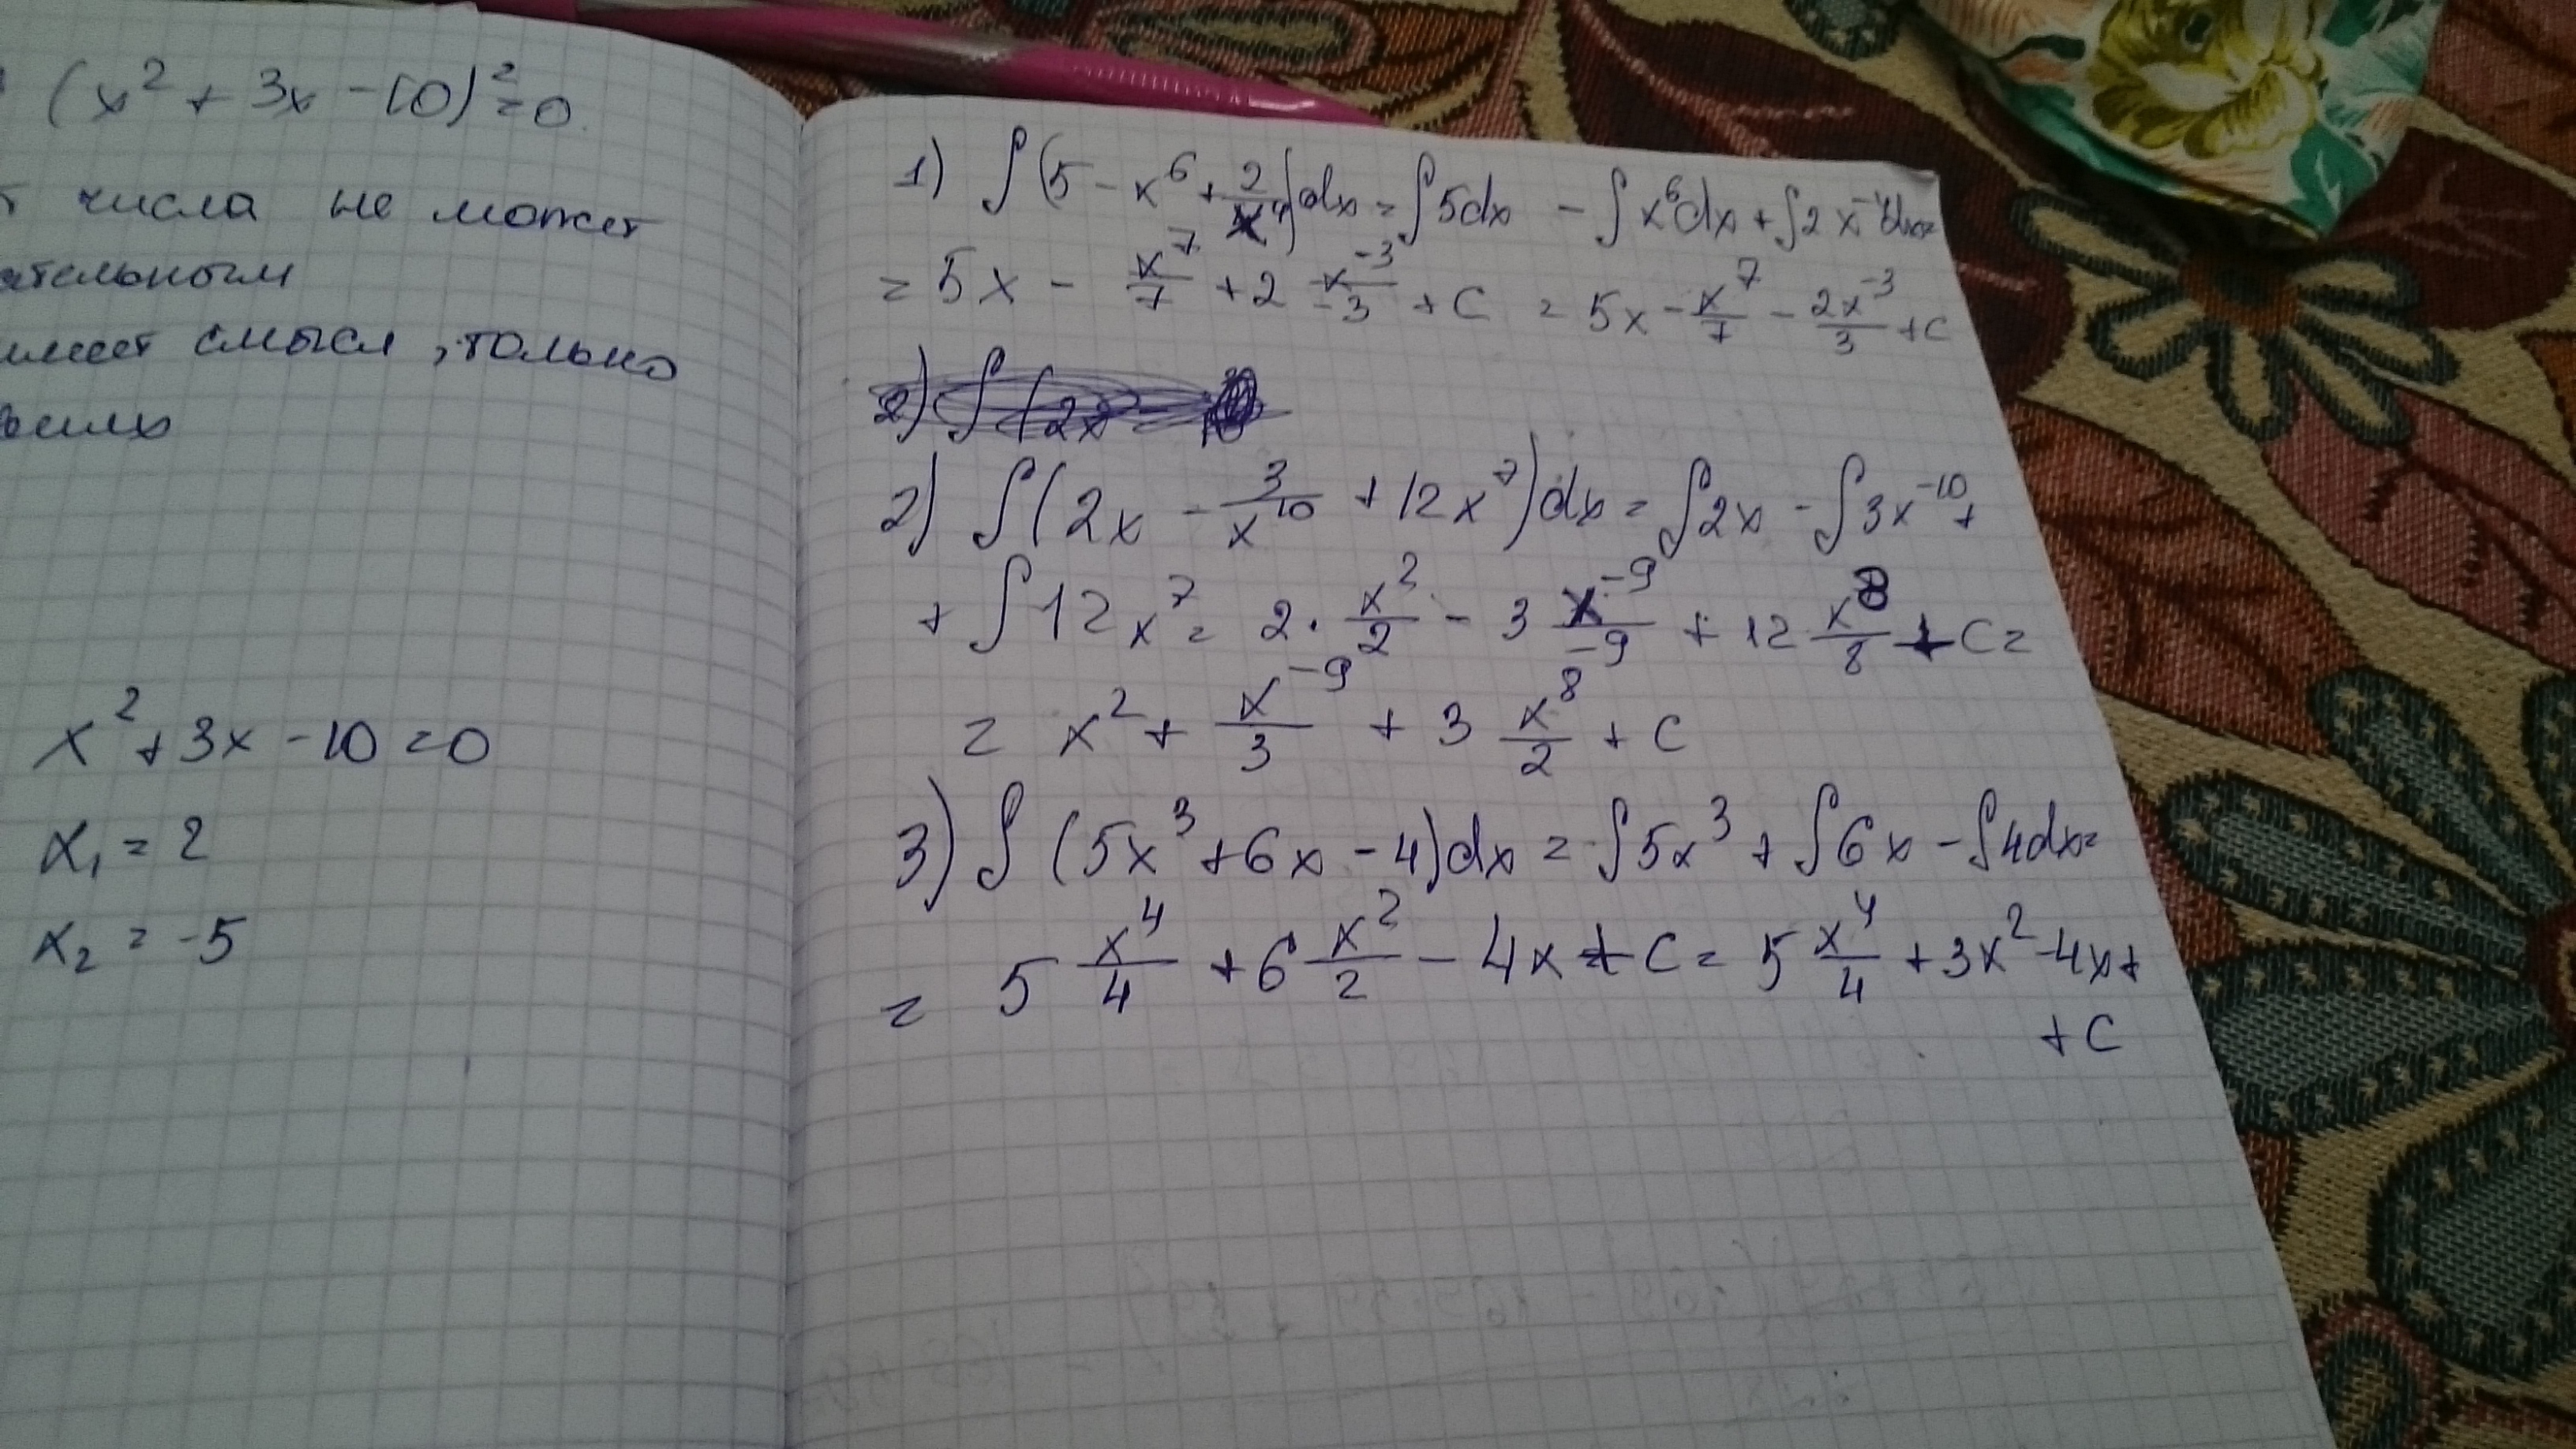 (x² + 3x - 10)² = 0
числа не может
имеет смысл, только
x² + 3x - 10 = 0
x₁ = 2
x₂ = -5
1) ∫(5 - x⁶ + 2/x⁴)dx = ∫5dx - ∫x⁶dx + ∫2x⁻⁴dx =
= 5x - x⁷/7 + 2 x⁻³/-3 + C = 5x - x⁷/7 - 2x⁻³/3 + C
2) ∫(2x - 3/x¹⁰ + 12x⁷)dx = ∫2x - ∫3x⁻¹⁰ +
+ ∫12x⁷ = 2 · x²/2 - 3 x⁻⁹/-9 + 12 x⁸/8 + C =
= x² + x⁻⁹/3 + 3 x⁸/2 + C
3) ∫(5x³ + 6x - 4)dx = ∫5x³ + ∫6x - ∫4dx =
= 5 x⁴/4 + 6 x²/2 - 4x + C = 5 x⁴/4 + 3x² - 4x +
+ C